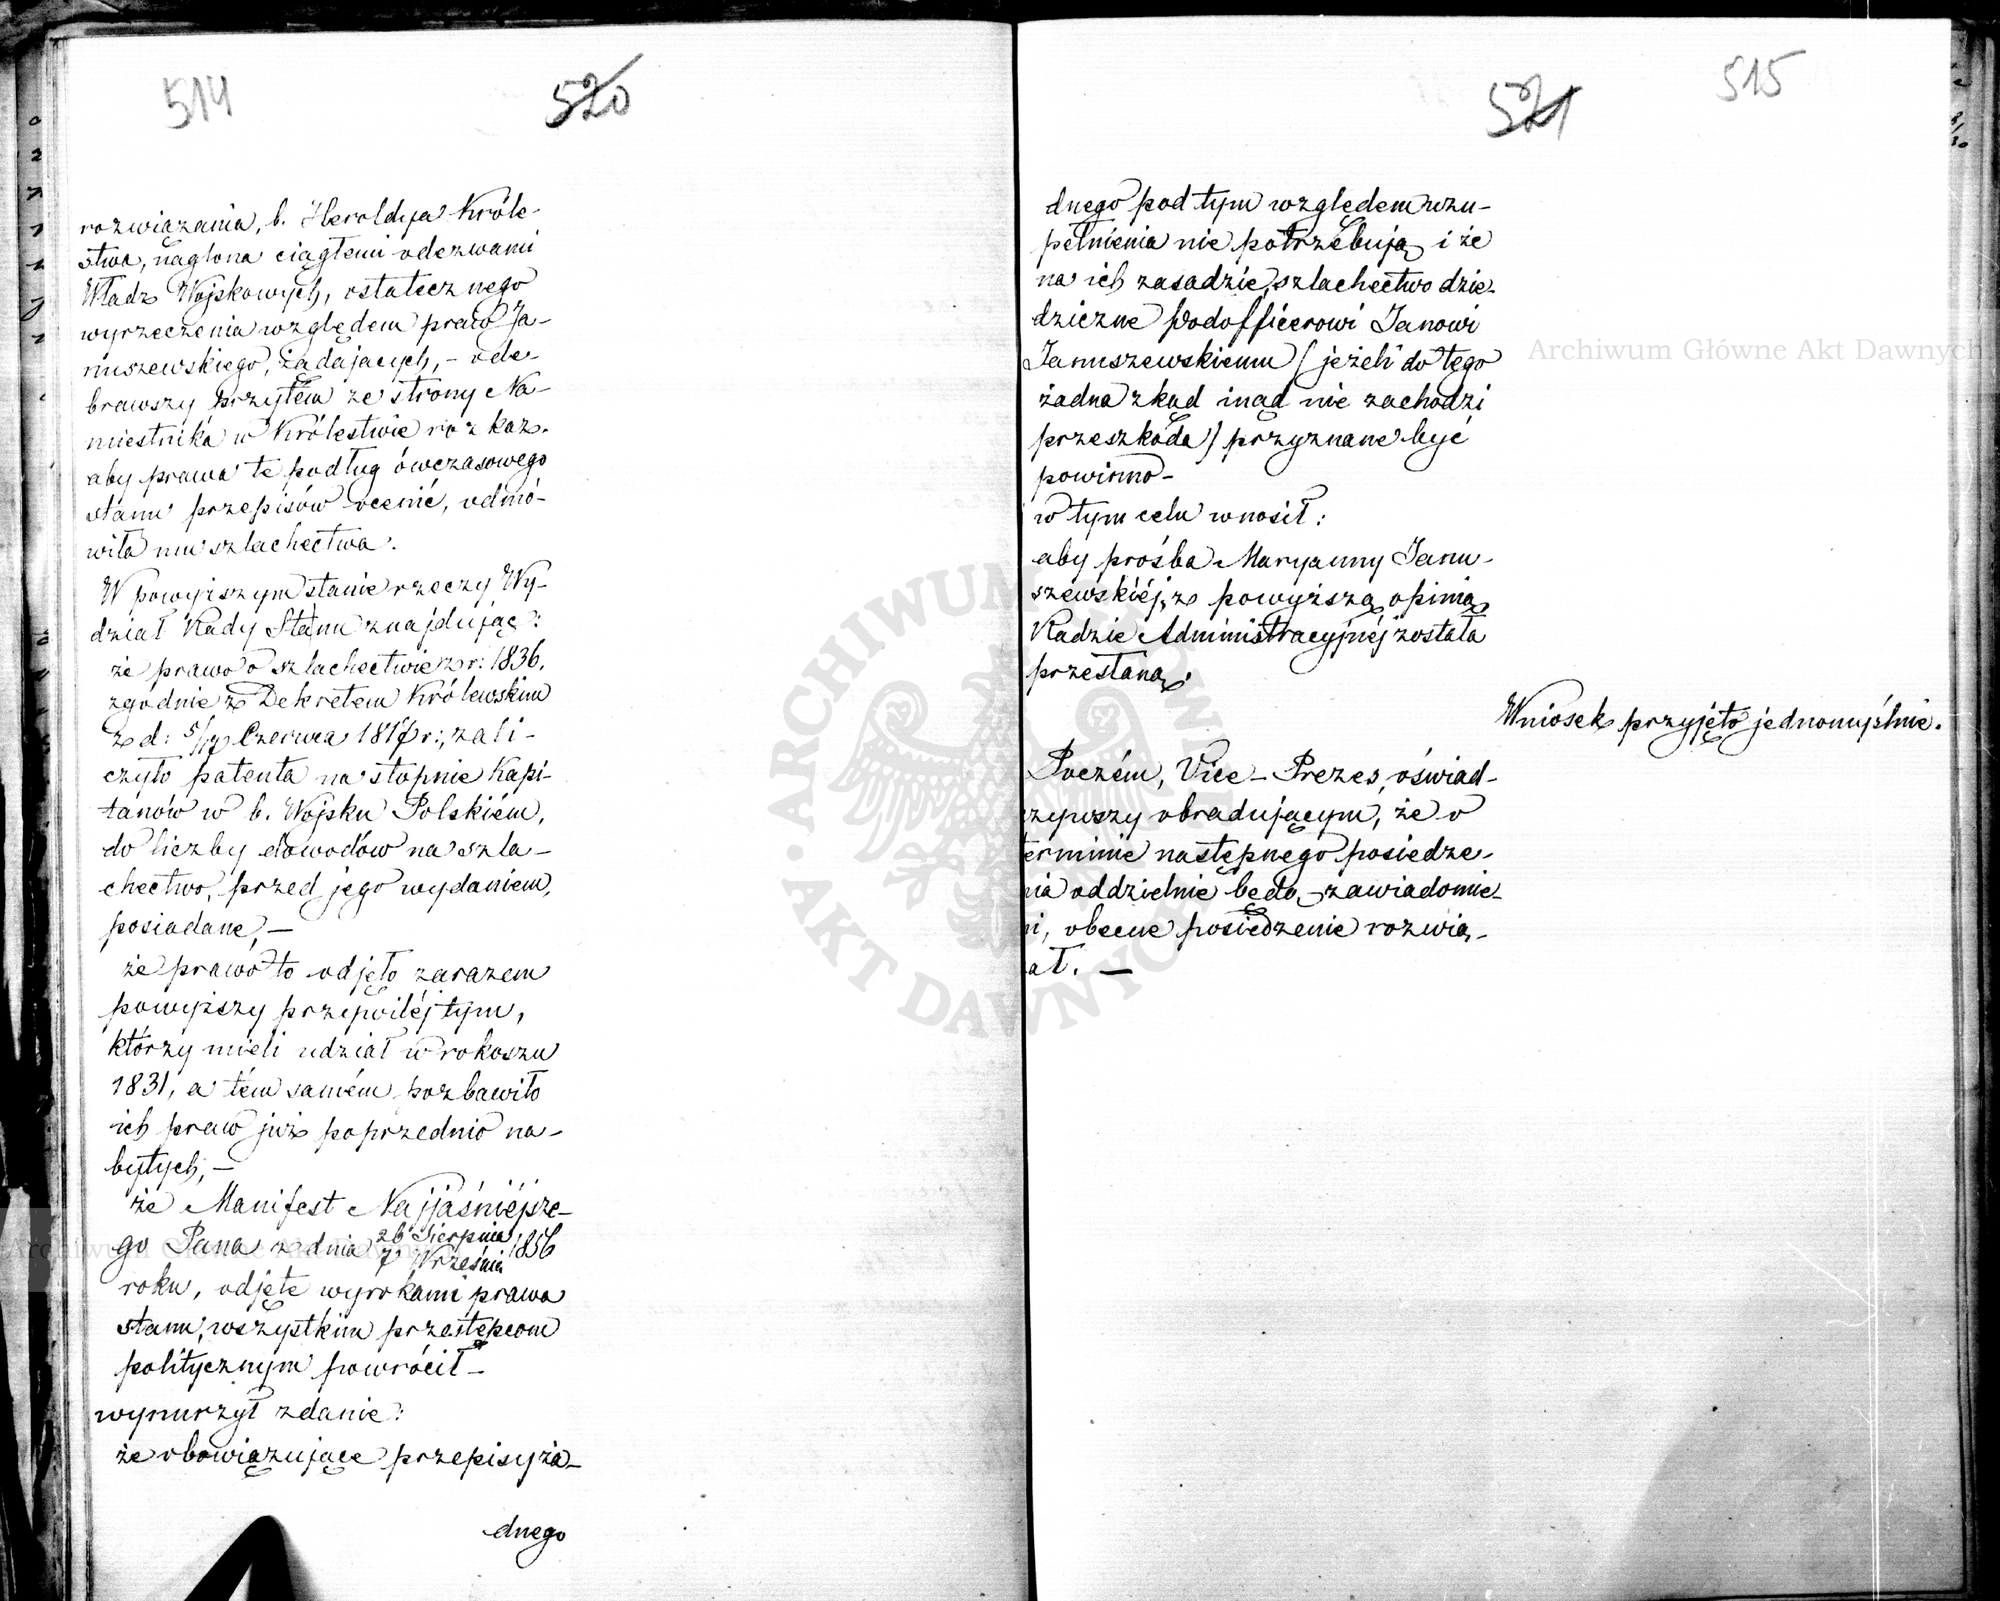 514
520
rozwiązania, b. Heroldya Króle-
stwa, naglona ciągłemi odezwami
Władz Wojskowych, ostatecznego
wyrzeczenia względem praw Ja-
nuszewskiego, żądających, - ode-
brawszy przytém ze strony Na-
miestnika w Królestwie rozkaz.
aby prawa te podług ówczasowego
stanu przepisów ocenić, odmó-
wiła mu szlachectwa.
W powyższym stanie rzeczy Wy-
dział Rady Stanu znajdując:
że prawo o szlachectwie z r: 1836,
zgodnie z Dekretem Królewskim
z d: 5/17 Czerwca 1817 r:, zali-
czyło patenta na stopnie Kapi-
tanów w b. Wojsku Polskiém,
do liczby dowodów na szla-
chectwo, przed jego wydaniem,
posiadane, -
że prawo to odjęło zarazem
powyższy przywilej tym,
którzy mieli udział w rokoszu
1831, a tém samém pozbawiło
ich praw już poprzednio na-
bytych, -
że Manifest Najjaśniejsze-
go Pana z dnia 26 Sierpnia/7 Września 1856
roku, odjęte wyrokami prawa
stanu, wszystkim przestępcom
politycznym powrócił -
wynurzył zdanie:
że obowiązujące przepisy ża-
dnego
521
515
dnego pod tym względem uzu-
pełnienia nie potrzebują i że
na ich zasadzie, szlachectwo dzie-
dziczne Podofficerowi Janowi
Januszewskiemu (jeżeli do tego
żadna zkąd inąd nie zachodzi
przeszkoda) przyznane być
powinno -
w tym celu wnosił:
aby prośba Maryanny Janu-
szewskiéj, z powyższą opinią
Radzie Administracyjnéj została
przesłaną.
Wniosek przyjęto jednomyślnie.
Poczém, Vice-Prezes, oświad-
czywszy obradującym, że o
terminie następnego posiedze-
nia oddzielnie będą zawiadomie-
ni, obecne posiedzenie rozwią-
ał. -
Archiwum Główne Akt Dawnych
Archiwum Główne Akt Dawnych
ARCHIWUM GŁÓWNE • AKT DAWNYCH •